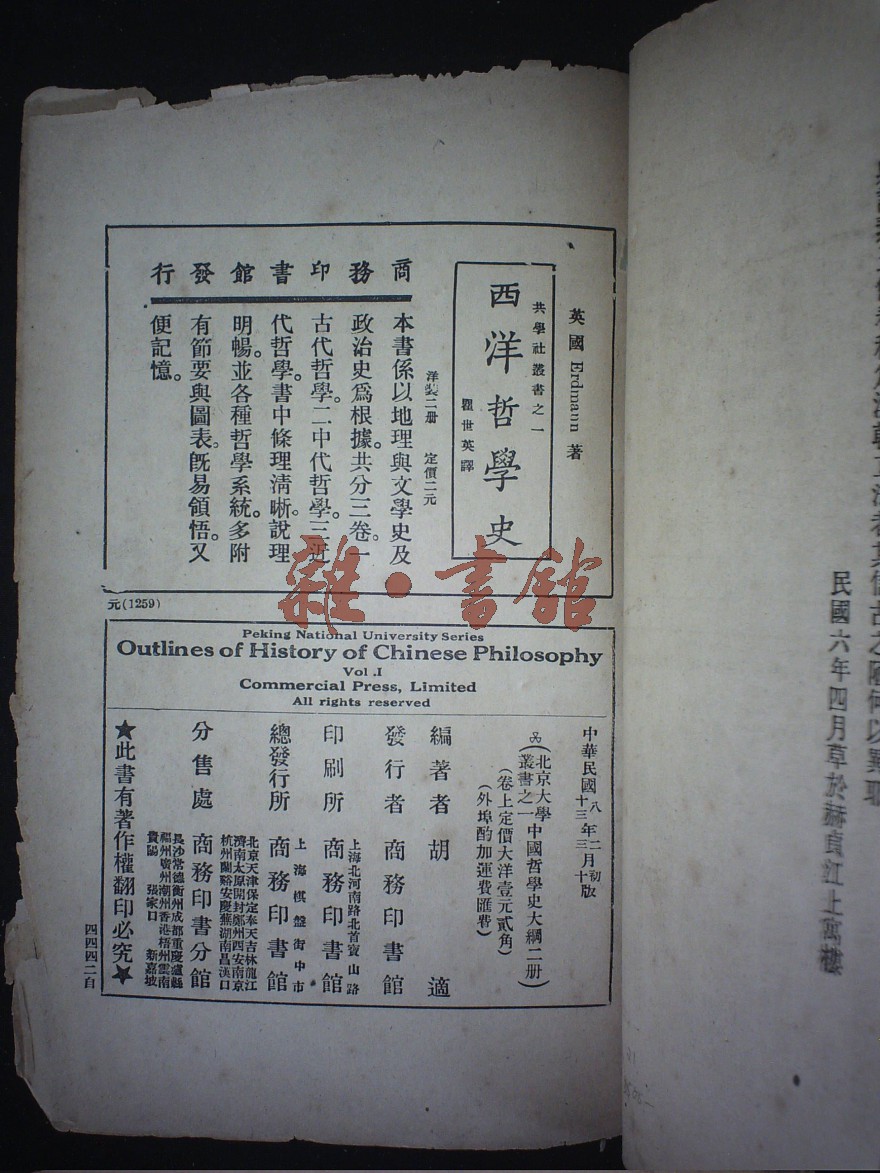 民國六年四月草於赫貞江上寓樓
英國 Erdmann 著
共學社叢書之一
西洋哲學史
瞿世英譯
洋裝二册 定價二元
商務印書館發行
本書係以地理與文學史及
政治史爲根據。共分三卷。一
古代哲學。二中代哲學。三近
代哲學。書中條理清晰。說理
明暢。並各種哲學系統。多附
有節要與圖表。旣易領悟。又
便記憶。
元(1259)
雜·書館
Peking National University Series
Outlines of History of Chinese Philosophy
Vol .I
Commercial Press, Limited
All rights reserved
中華民國八年二月初
十三年三 十版
(北京大學叢書之一 中國哲學史大綱二册)
(卷上定價大洋壹元貳角)
(外埠酌加運費匯費)
編著者 胡適
發行者 商務印書館
印刷所 上海北河南路北首寶山路 商務印書館
總發行所 上海棋盤街中市 商務印書館
分售處 商務印書分館
北京天津保定奉天吉林龍江
濟南太原開封鄭州西安南京
杭州蘭谿安慶蕪湖南昌漢口
長沙常德衡州成都重慶瀘縣
福州廣州潮州香港梧州雲南
貴陽 張家口 新嘉坡
★此書有著作權翻印必究★
四四四二自